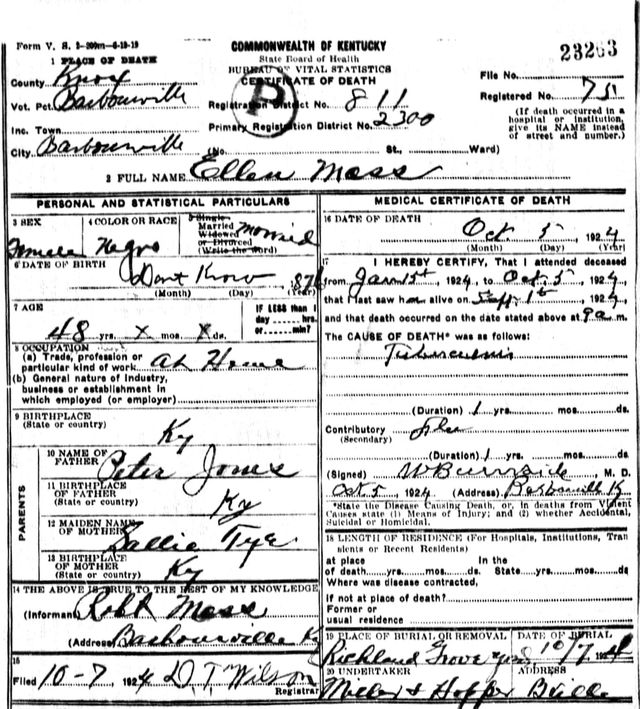 Form V. S. 2-200m-6-19-19
COMMONWEALTH OF KENTUCKY
State Board of Health
BUREAU OF VITAL STATISTICS
CERTIFICATE OF DEATH
23263
1 PLACE OF DEATH
County Knox
Vot. Pct. Barbourville
Inc. Town
City Barbourville
P
Registration District No. 811
Primary Registration District No. 2300
File No.
Registered No. 751
(If death occurred in a
hospital or institution,
give its NAME instead
of street and number.)
(No. St., Ward)
2 FULL NAME Ellen Moss
PERSONAL AND STATISTICAL PARTICULARS
3 SEX
Female
4 COLOR OR RACE
Negro
5 Single
Married
Widowed
or Divorced
(Write the word)
Married
6 DATE OF BIRTH
Dont Know, 1876
(Month) (Day) (Year)
7 AGE
48 yrs. x mos. x ds.
IF LESS than 1
day hrs.
or min?
8 OCCUPATION
(a) Trade, profession or
particular kind of work At Home
(b) General nature of industry,
business or establishment in
which employed (or employer)
9 BIRTHPLACE
(State or country)
Ky
PARENTS
10 NAME OF
FATHER
Peter Jones
11 BIRTHPLACE
OF FATHER
(State or country)
Ky
12 MAIDEN NAME
OF MOTHER
Sallie Tye
13 BIRTHPLACE
OF MOTHER
(State or country)
Ky
14 THE ABOVE IS TRUE TO THE BEST OF MY KNOWLEDGE
(Informant Robt Moss
(Address Barbourville Ky
15
Filed 10-7, 1924 D. T. Wilson
Registrar
MEDICAL CERTIFICATE OF DEATH
16 DATE OF DEATH
Oct 5, 1924
(Month) (Day) (Year)
17 I HEREBY CERTIFY, That I attended deceased
from Jan 15th, 1924, to Oct 5, 1924,
that I last saw her alive on Sept 1st, 1924,
and that death occurred on the date stated above at 9 a m.
The CAUSE OF DEATH* was as follows:
Tuberculosis
(Duration) 1 yrs. mos. ds.
Contributory Flu
(Secondary)
(Duration) 1 yrs. mos. ds.
(Signed) W Burnside, M. D.
Oct 5, 1924 (Address) Barbourville K
*State the Disease Causing Death, or, in deaths from Violent
Causes state (1) Means of Injury; and (2) whether Accidental,
Suicidal or Homicidal.
18 LENGTH OF RESIDENCE (For Hospitals, Institutions, Tran
sients or Recent Residents)
At place In the
of death yrs. mos. ds. State yrs. mos. ds.
Where was disease contracted,
If not at place of death?
Former or
usual residence
19 PLACE OF BURIAL OR REMOVAL
Richland Grove yard
DATE OF BURIAL
10/7 1924
20 UNDERTAKER
Miller & Hopper
ADDRESS
Bville